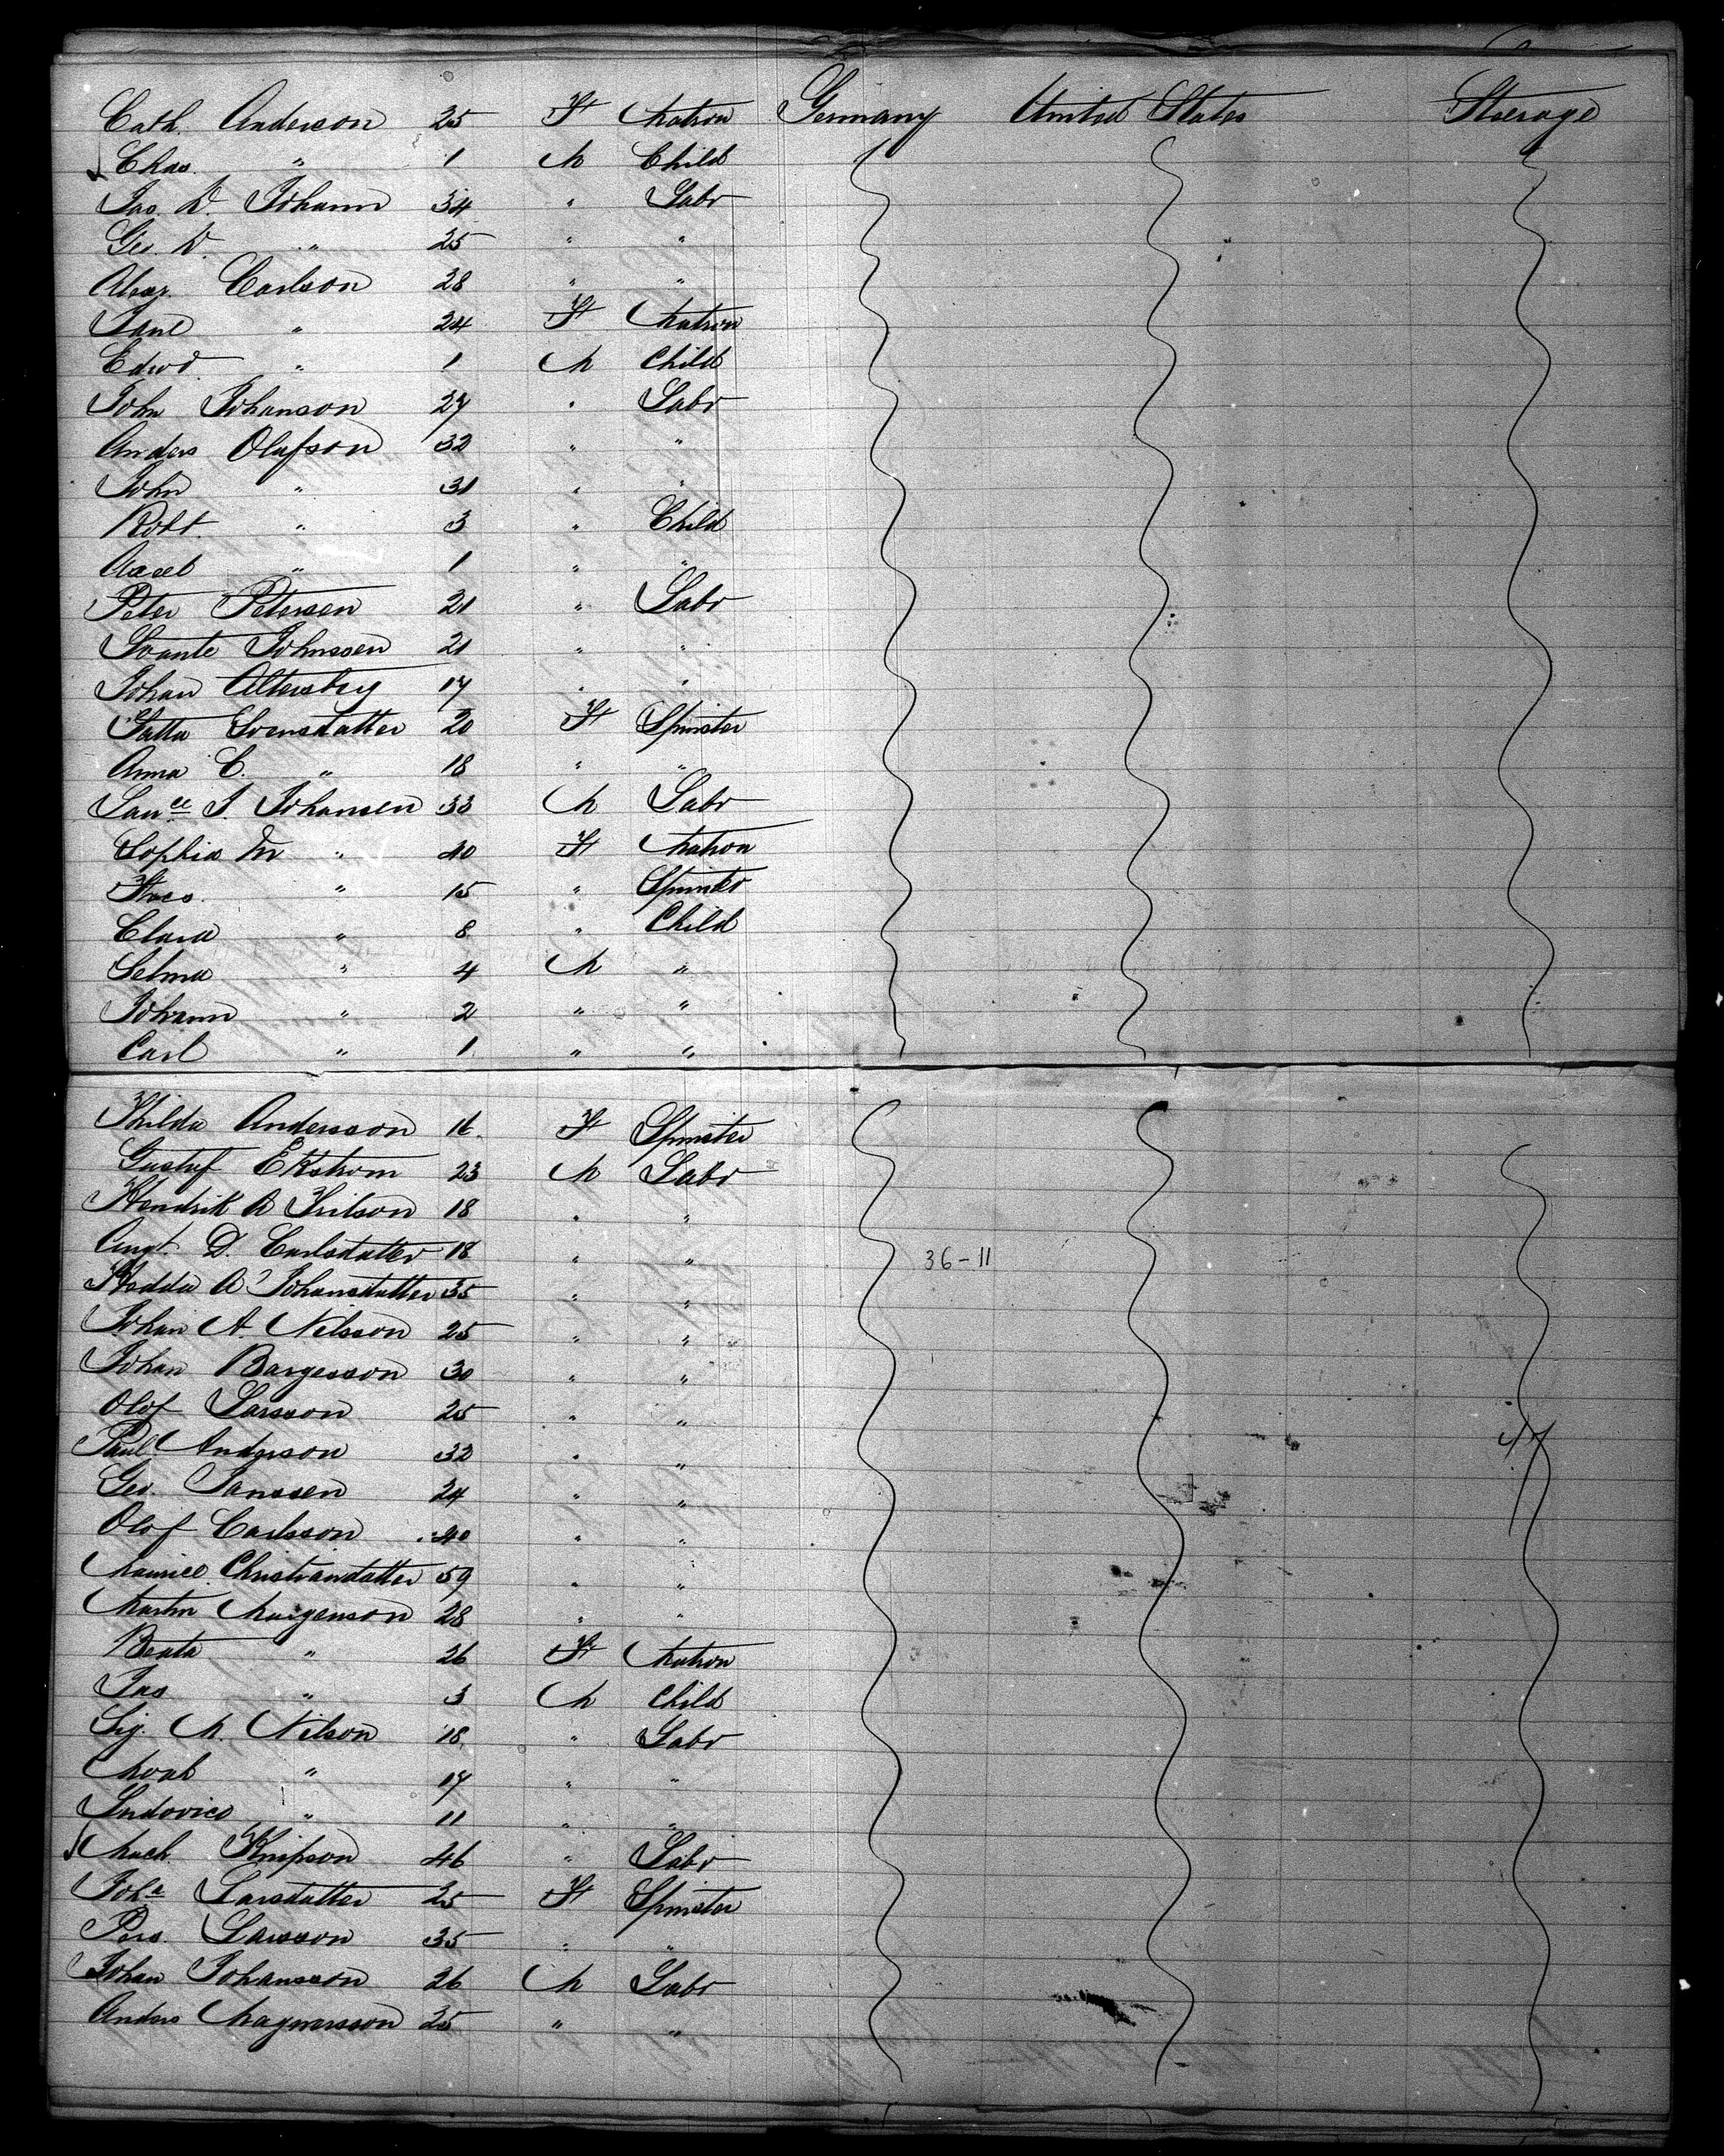 Cath. Anderson 25 F Matron Germany United States Steerage
Chas. " 1 M Child
Jas. D. Johann 34 " Labr
Geo. D. " 25 " "
Alexr. Carlson 28 " "
Jane " 24 F Matron
Edwd. " 1 M Child
John Johanson 27 " Labr
Anders Olafson 32 " "
John " 31 " "
Robt. " 3 " Child
Axel " 1 " "
Peter Petersen 21 " Labr
Svante Johnssen 21 " "
Johan Altersberg 17 " "
Svensdatter 20 F Spinster
Anna C. " 18 " "
Lawce J. Johansen 33 M Labr
Sophia M " 40 F Matron
" 15 " Spinster
Clara " 8 " Child
Selma " 4 M "
Johann " 2 " "
Carl " 1 " "
Hilda Andersson 16 F Spinster
Gustaf Ekstrom 23 M Labr
Hendrik A 18 " "
Augt. D. Carlsdatter 18 " "
36-11
Hedda A Johansdatter 35 " "
Johan A. Nilsson 25 " "
Johan Bargesson 30 " "
Olof Larsson 25 " "
Paul Anderson 32 " "
47
Geo. Janssen 24 " "
Olof Carlsson 40 " "
Maurice Christiandatter 59 " "
Martin Morgenson 28 " "
Beata " 26 F Matron
Jas " 3 M Child
Sig. M. Nilson 18 " Labr
" 17 " "
Ludovico " 11 " "
Mich. Knipson 46 " Labr
Joha Larsdatter 25 F Spinster
Pers. Larsson 35 " "
Johan Johansson 26 M Labr
Anders Magnersson 25 " "